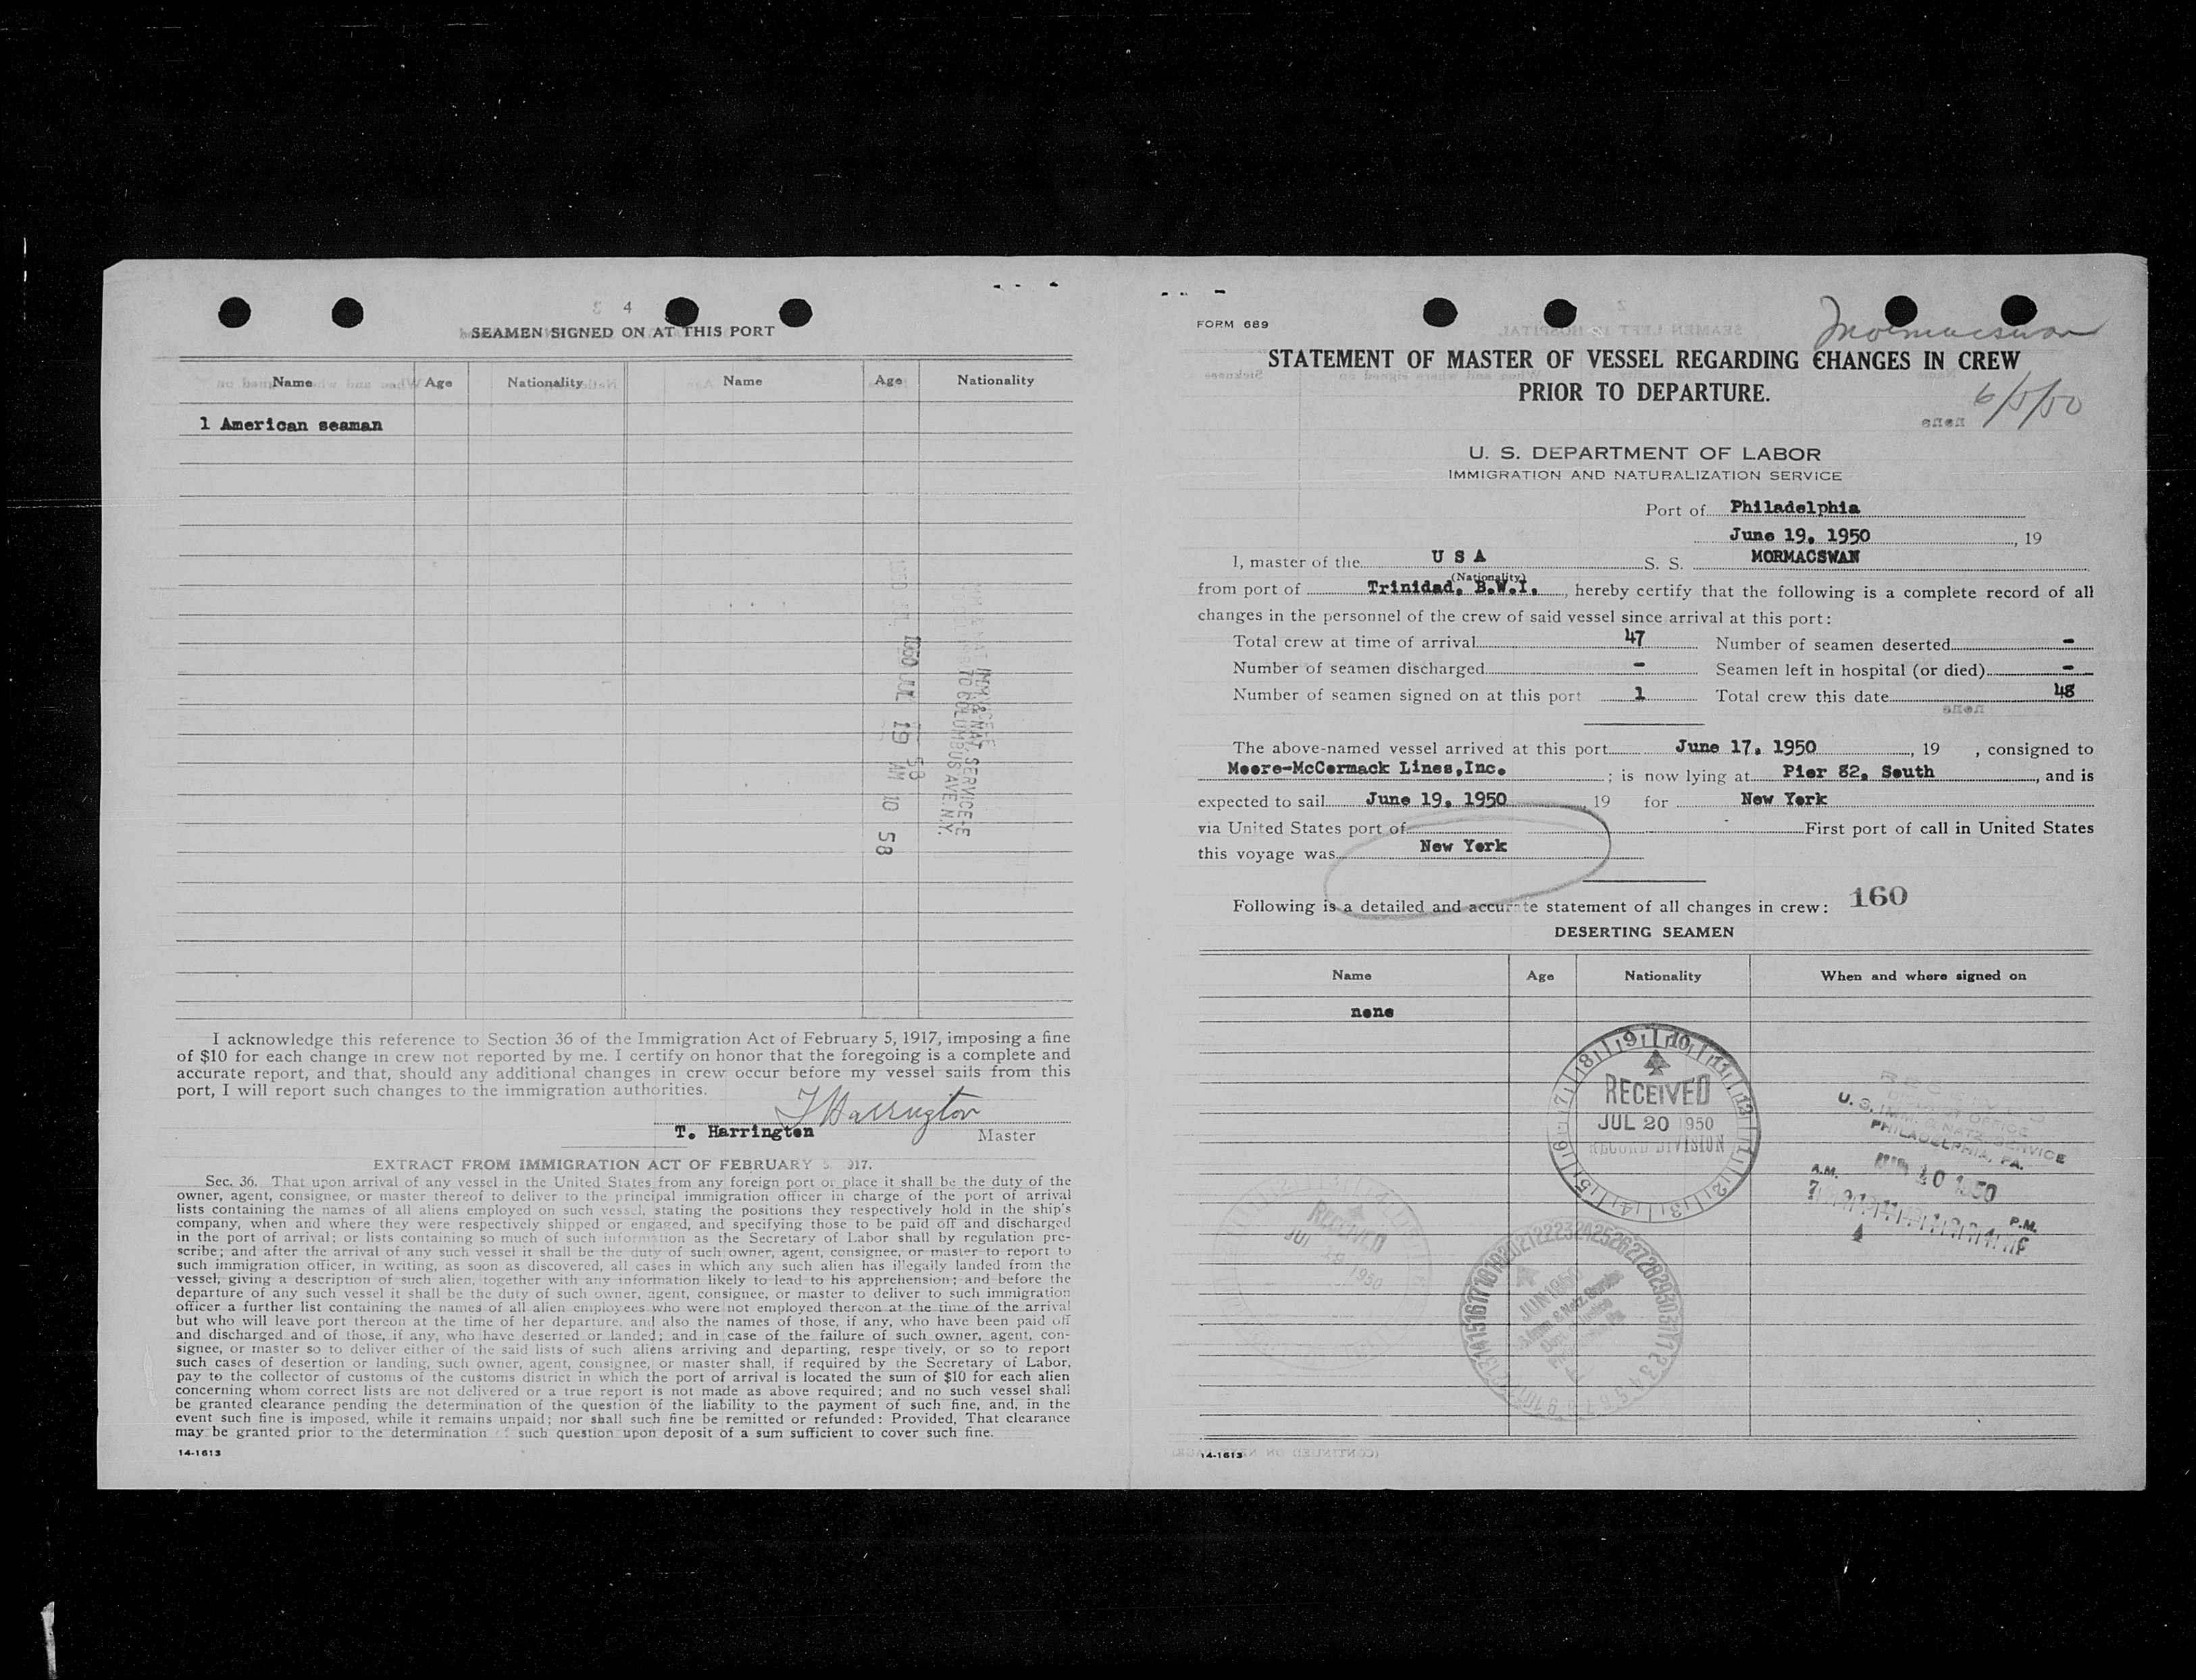 4
SEAMEN SIGNED ON AT THIS PORT
Name Age Nationality Name Age Nationality
1 American seaman
1950 JUL 19 AM 10 58
IMM & NAT. SERVICE-E
70 COLUMBUS AVE. N.Y.
I acknowledge this reference to Section 36 of the Immigration Act of February 5, 1917, imposing a fine
of $10 for each change in crew not reported by me. I certify on honor that the foregoing is a complete and
accurate report, and that, should any additional changes in crew occur before my vessel sails from this
port, I will report such changes to the immigration authorities.
T Harrington
T. Harrington Master
EXTRACT FROM IMMIGRATION ACT OF FEBRUARY 5 917.
Sec. 36. That upon arrival of any vessel in the United States from any foreign port or place it shall be the duty of the
owner, agent, consignee, or master thereof to deliver to the principal immigration officer in charge of the port of arrival
lists containing the names of all aliens employed on such vessel, stating the positions they respectively hold in the ship's
company, when and where they were respectively shipped or engaged, and specifying those to be paid off and discharged
in the port of arrival; or lists containing so much of such information as the Secretary of Labor shall by regulation pre-
scribe; and after the arrival of any such vessel it shall be the duty of such owner, agent, consignee, or master to report to
such immigration officer, in writing, as soon as discovered, all cases in which any such alien has illegally landed from the
vessel, giving a description of such alien, together with any information likely to lead to his apprehension; and before the
departure of any such vessel it shall be the duty of such owner, agent, consignee, or master to deliver to such immigration
officer a further list containing the names of all alien employees who were not employed thereon at the time of the arrival
but who will leave port thereon at the time of her departure, and also the names of those, if any, who have been paid off
and discharged and of those, if any, who have deserted or landed; and in case of the failure of such owner, agent, con-
signee, or master so to deliver either of the said lists of such aliens arriving and departing, respe tively, or so to report
such cases of desertion or landing, such owner, agent, consignee, or master shall, if required by the Secretary of Labor,
pay to the collector of customs of the customs district in which the port of arrival is located the sum of $10 for each alien
concerning whom correct lists are not delivered or a true report is not made as above required; and no such vessel shall
be granted clearance pending the determination of the question of the liability to the payment of such fine, and, in the
event such fine is imposed, while it remains unpaid; nor shall such fine be remitted or refunded: Provided, That clearance
may be granted prior to the determination of such question upon deposit of a sum sufficient to cover such fine.
14-1613
FORM 689
Mormacswan
STATEMENT OF MASTER OF VESSEL REGARDING CHANGES IN CREW
PRIOR TO DEPARTURE.
6/5/50
U. S. DEPARTMENT OF LABOR
IMMIGRATION AND NATURALIZATION SERVICE
Port of Philadelphia
June 19, 1950, 19
I, master of the U S A S. S. MORMACSWAN
(Nationality)
from port of Trinidad, B.W.I., hereby certify that the following is a complete record of all
changes in the personnel of the crew of said vessel since arrival at this port:
Total crew at time of arrival 47 Number of seamen deserted -
Number of seamen discharged - Seamen left in hospital (or died) -
Number of seamen signed on at this port 1 Total crew this date 48
The above-named vessel arrived at this port June 17, 1950, 19 , consigned to
Moore-McCormack Lines,Inc. ; is now lying at Pier 82, South, and is
expected to sail June 19, 1950, 19 for New York
via United States port of First port of call in United States
this voyage was New York
Following is a detailed and accurate statement of all changes in crew: 160
DESERTING SEAMEN
Name Age Nationality When and where signed on
none
RECEIVED
JUL 20 1950
RECORD DIVISION
RECEIVED
DISTRICT OFFICE
U. S. IMM. & NATZ. SERVICE
PHILADELPHIA, PA.
1950
A.M. P.M.
RECEIVED
1950
JUN 1950
14-1613